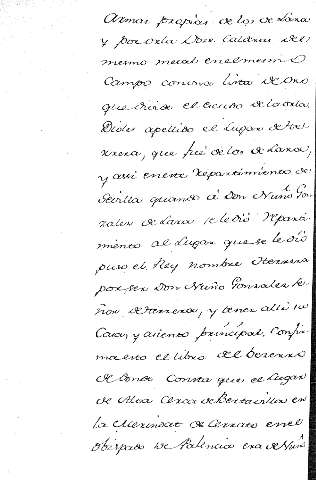 Armas propias de los de Lara
y por orla Doze Calderas del
mesmo metal en el mesmo
Campo con una lista de Oro
que divide el escudo de la orla.
Dioles apellido el Lugar de Her
rera, que fué de los de Lara,
y assi en este repartimiento de
Sevilla quando á Don Nuño Gon
zalez de Lara se le dió repar
timiento al Lugar que se le dió
puso el Rey nombre Herrera
por ser Don Nuño Gonzalez Se
ñor de Herrera, y tener alli su
Casa, y asiento principal. Confir
ma esto el libro del Bezerro
de donde Consta que el Lugar
de Alva Cerca de Bertavillo en
la Merindat de Cerrato en el
Obispado de Palencia era de Nuño